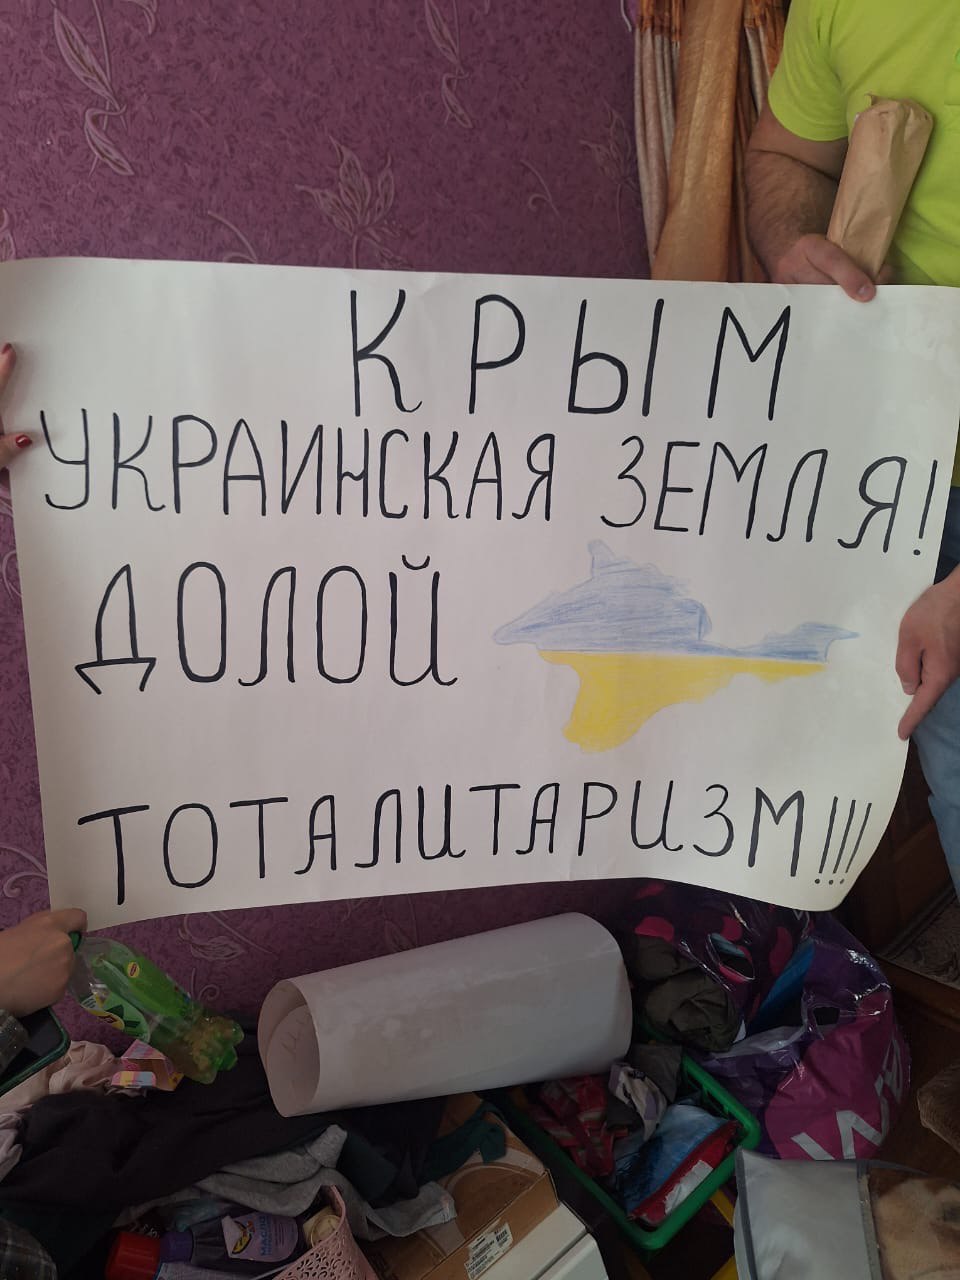 КРЫМ
УКРАИНСКАЯ ЗЕМЛЯ!
ДОЛОЙ
ТОТАЛИТАРИЗМ!!!